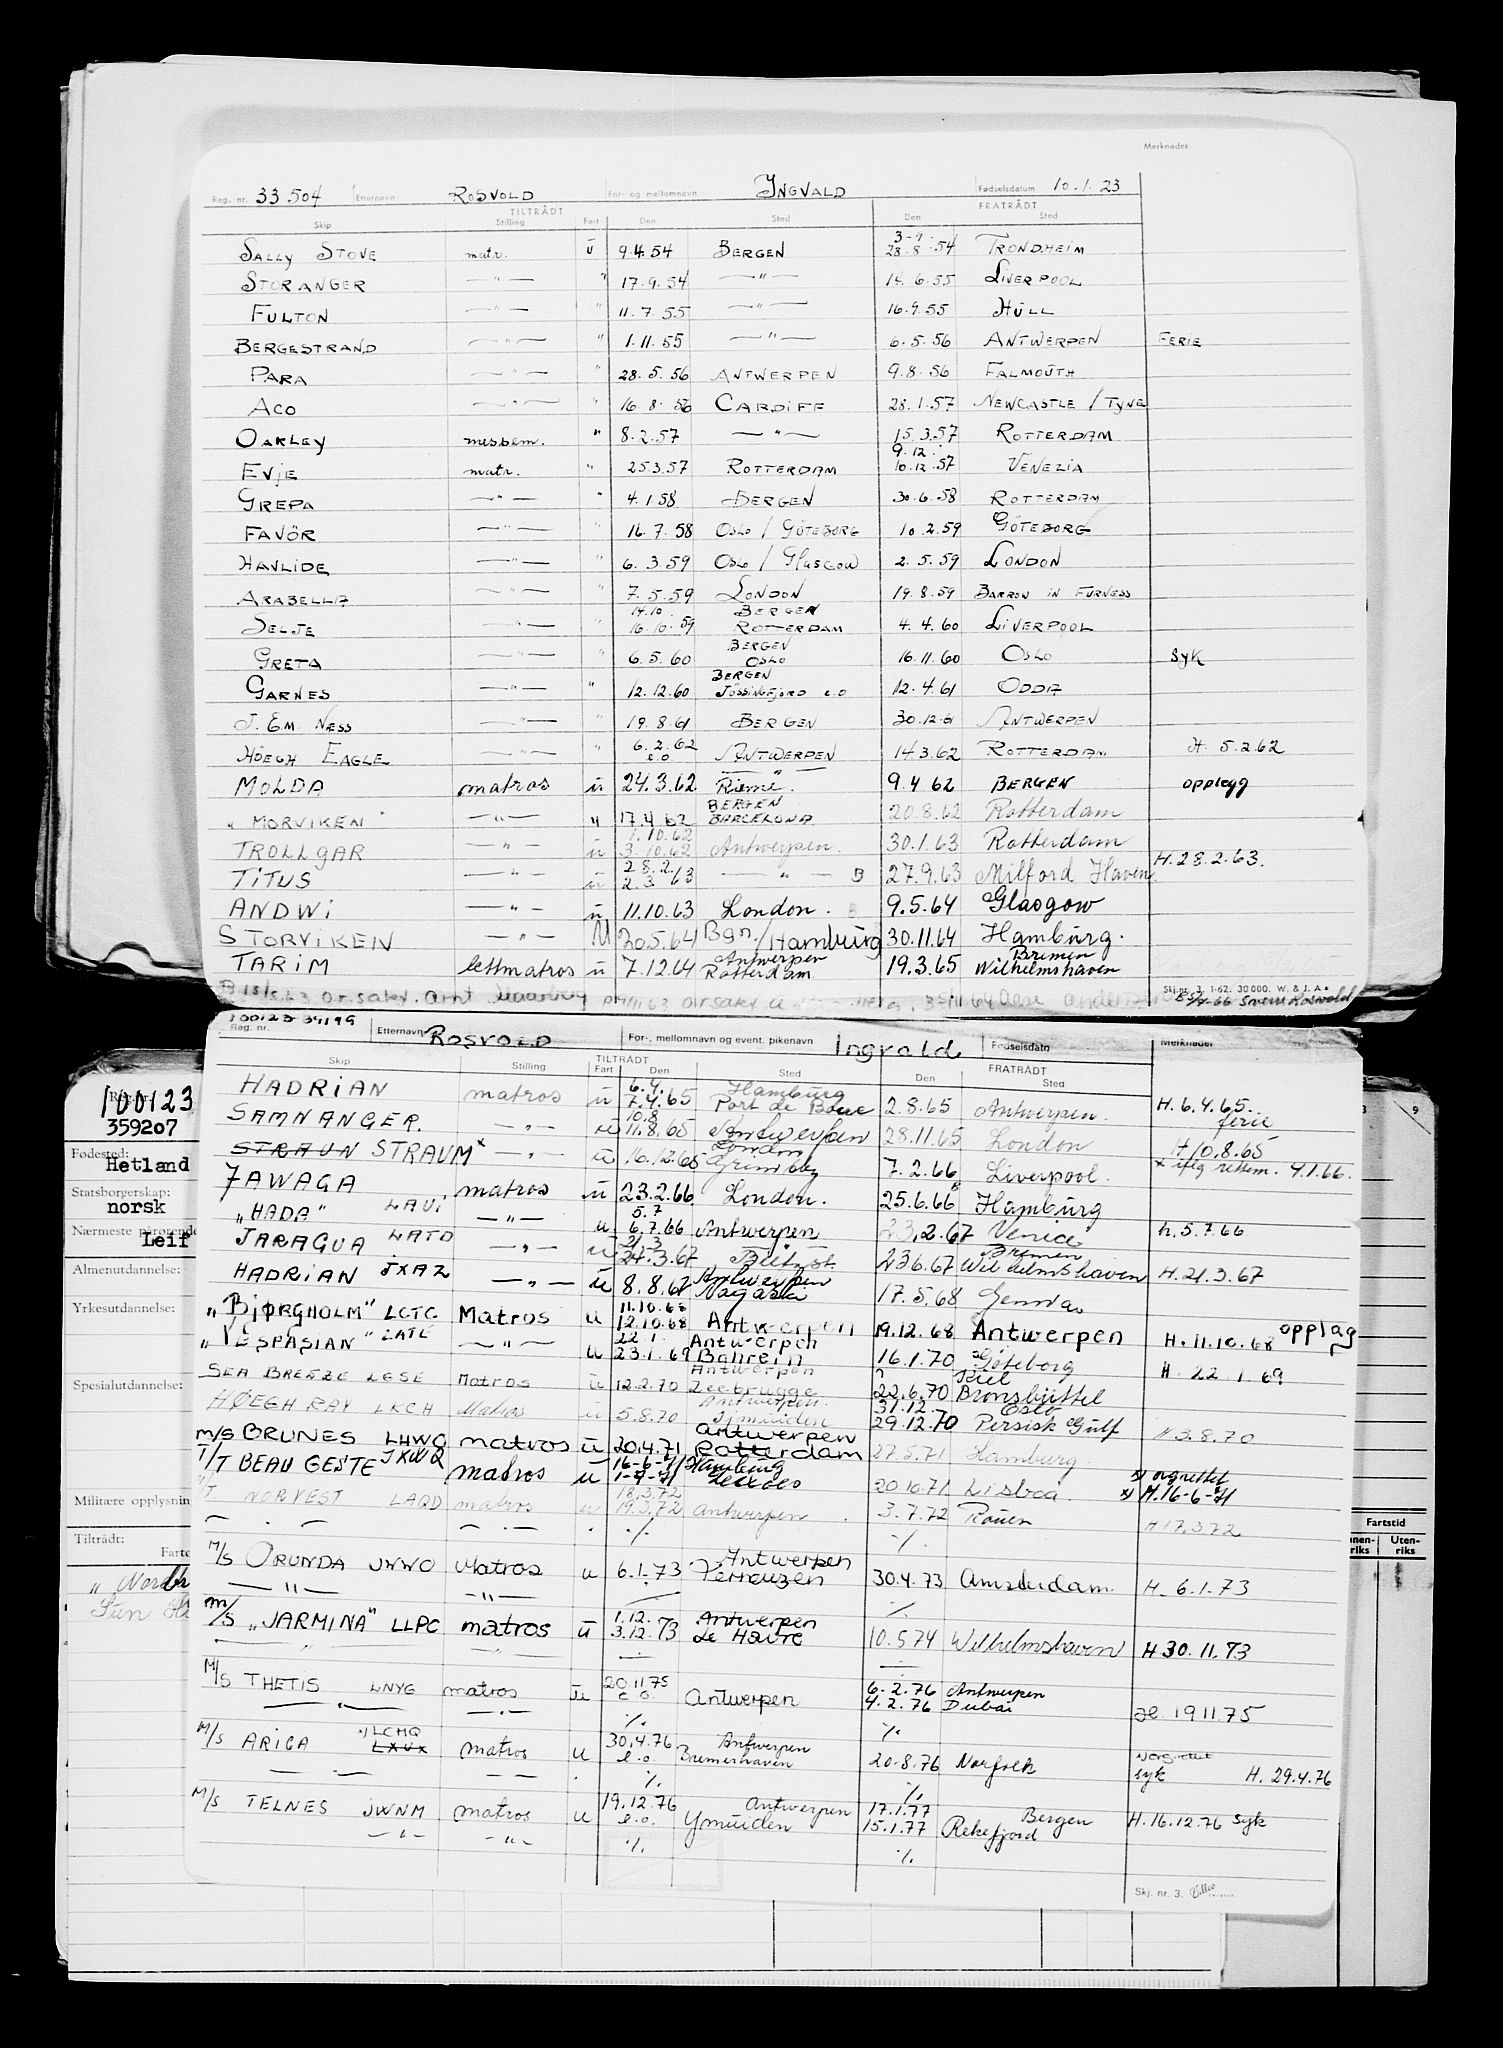 Merknader
Reg. nr. 33.504 Etternavn ROSVOLD For- og mellomnavn INGVALD Fødselsdatum 10.1.23
TILTRÅDT FRATRÅDT
Skip Stilling Fart Den Sted Den Sted
3-9-
SALLY STOVE matr. ū 9.4.54 BERGEN 28.8.54 TRONDHEIM
STORANGER —"— " 17.9.54 —"— 14.6.55 LIVERPOOL
FULTON —"— " 11.7.55 —"— 16.9.55 HULL
BERGESTRAND —"— " 1.11.55 —"— 6.5.56 ANTWERPEN FERIE
PARA —"— " 28.5.56 ANTWERPEN 9.8.56 FALMOUTH
ACO —"— " 16.8.56 CARDIFF 28.1.57 NEWCASTLE / TYNE
OAKLEY messem. " 8.2.57 —"— 15.3.57 ROTTERDAM
9.12.
EVJE matr. " 25.3.57 ROTTERDAM 10.12.57 VENEZIA
GREPA —"— " 4.1.58 BERGEN 30.6.58 ROTTERDAM
FAVÖR —"— " 16.7.58 OSLO / GÖTEBORG 10.2.59 GÖTEBORG
HAVLIDE —"— " 6.3.59 OSLO / GLASGOW 2.5.59 LONDON
ARABELLA —"— " 7.5.59 LONDON 19.8.59 BARROW IN FURNESS
14.10. BERGEN
SELJE —"— " 16.10.59 ROTTERDAM 4.4.60 LIVERPOOL
BERGEN
GRETA —"— " 6.5.60 OSLO 16.11.60 OSLO syk
BERGEN
GARNES —"— " 12.12.60 JÖSSINGFJORD e.o 12.4.61 ODDA
J. EM. NESS —"— " 19.8.61 BERGEN 30.12.61 ANTWERPEN
HÖEGH EAGLE —"— " 6.2.62 e.o. ANTWERPEN 14.3.62 ROTTERDAM H. 5.2.62
—"—
MOLDA matros ū 24.3.62 Rieme. 9.4.62 BERGEN opplegg
BERGEN
" MORVIKEN " —"— " 17.4.62 BARCELONA 20.8.62 Rotterdam
1.10.62
TROLLGAR —"— ū 3.10.62 Antwerpen. 30.1.63 Rotterdam
28.2. H. 28.2.63.
TITUS —"— ū 2.3.63 —"— B 27.9.63 Milford Haven
ANDWI —"— ū 11.10.63 London. 9.5.64 Glasgow
STORVIKEN —"— U 20.5.64 Bgn./Hamburg 30.11.64 Hamburg.
Antwerpen Bremen
TARIM lettmatros ū 7.12.64 Rotterdam 19.3.65 Wilhelmshaven
Skj. nr. 3. 1-62. 30 000. W. & J. A.
100123-34199
Reg. nr. Etternavn ROSVOLD For-, mellomnavn og event. pikenavn Ingvald Fødselsdato Merknader
TILTRÅDT FRATRÅDT
Skip Stilling Fart Den Sted Den Sted
6.4. Hamburg
HADRIAN matros ū 7.4.65 Port de Bouc 2.8.65 Antwerpen. H. 6.4.65. ferie
10.8
SAMNANGER. —"— ū 11.8.65 Antwerpen 28.11.65 London H 10.8.65
London
STRAUN STRAUM x —"— ū 16.12.65 Grimsby 7.2.66 Liverpool. x iflg rettem. 4.1.66.
JAWAGA matros ū 23.2.66 London. 25.6.66 Hamburg
5.7
"HADA" LAVI —"— u 6.7.66 Antwerpen 23.2.67 Venice h. 5.7.66
21.3 Bremen
JARAGUA LATD —"— ū 24.3.67 23.6.67 Wilhelmshaven H. 21.3.67
Antwerpen
HADRIAN JXAZ —"— ū 8.8.67 Nagasaki 17.5.68 Genova
11.10.68
"BJØRGHOLM" LCTC Matros u 12.10.68 Antwerpen 19.12.68 Antwerpen H. 11.10.68 opplag
22.1. Antwerpen
"VESPASIAN" LATE —"— u 23.1.69 Bahrein 16.1.70 Göteborg H. 22.1.69
Antwerpen Kiel
SEA BREEZE LESE Matros ū 12.2.70 Zeebrugge 22.6.70 Brunsbüttel
Antwerpen. 31.12. Oslo
HØEGH RAY LKCH Matros ū 5.8.70 Ijmuiden 29.12.70 Persisk Gulf H 3.8.70
Antwerpen
M/S BRUNES LHWO matros ū 20.4.71 Rotterdam 27.5.71 Hamburg
16-6-71 Hamburg x) avgrettet
T/T BEAU GESTE JXWQ matros ū 1-7-71 20.10.71 Lisboa. x) H. 16-6-71
18.3.72
T/T NORVEST LAQD matros u 19.3.72 Antwerpen. 3.7.72 Rouen H 17.3.72
— " — — " — " ·/. ·/.
Antwerpen
M/S ORUNDA JWWO Matros u 6.1.73 Terneuzen 30.4.73 Amsterdam. H. 6.1.73
— " — — " — ·/.
1.12. Antwerpen
M/S "JARMINA" LLPC matros ū 3.12.73 Le Havre 10.5.74 Wilhelmshaven H 30.11.73
— " — — " —
20.11.75 6.2.76 Antwerpen
M/S THETIS LNYG matros ū e.o. Antwerpen 4.2.76 Dubai H. 19.11.75
— " — — " — ·/. ·/.
x) LCMQ 30.4.76 Antwerpen
M/S ARICA matros u e.o. Bremerhaven 20.8.76 Norfolk syk H. 29.4.76
— " — — " — ·/. ·/.
19.12.76 Antwerpen 17.1.77 Bergen
M/S TELNES JWNM matros u e.o. Ymuiden 15.1.77 Rekefjord H. 16.12.76 syk
— " — — " — ·/. ·/.
Skj. nr. 3.
Reg.nr.:
100123
359207
Fødested:
Hetland
Statsborgerskap:
norsk
Nærmeste pårørende
Leif
Almenutdannelse:
Yrkesutdannelse:
Spesialutdannelse:
Militære opplysnin
Tiltrådt:
Farte
9
Fartstid
nnen-riks Uten-riks